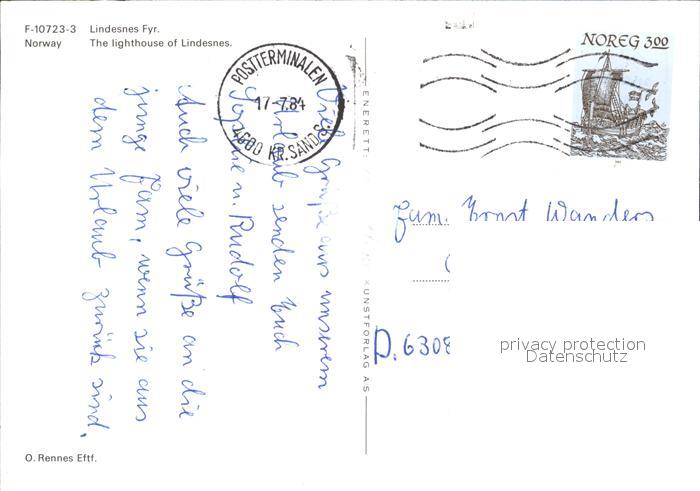 F-10723-3 Lindesnes Fyr.
Norway The lighthouse of Lindesnes.
NOREG 300
POSTTERMINALEN
17-7.84
4600 KR.SAND S.
Viele Grüße aus unserem
Urlaub senden Euch
Sophie u. Rudolf
Auch viele Grüße an die
junge Fam, wenn sie aus
dem Urlaub zurück sind.
ENERETT:
KUNSTFORLAG AS
Fam. Ernst Wanders
D. 6308
privacy protection
Datenschutz
O. Rennes Eftf.